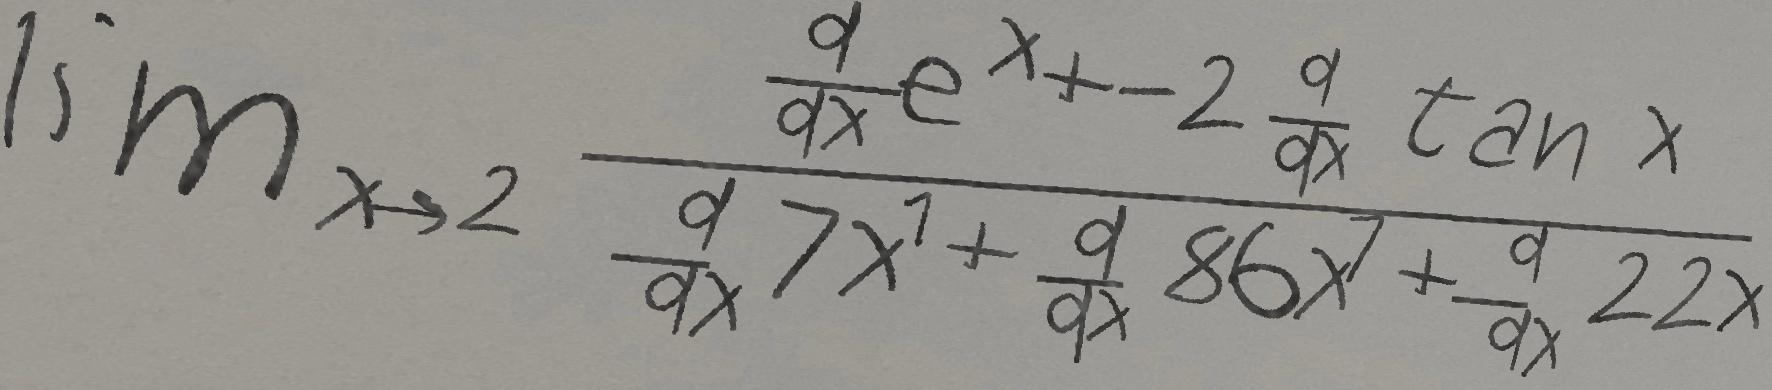 \lim_{x \to 2} \frac{\frac{d}{dx} e^x + -2 \frac{d}{dx} \tan x}{\frac{d}{dx} 7x^7 + \frac{d}{dx} 86x^7 + \frac{d}{dx} 22x}